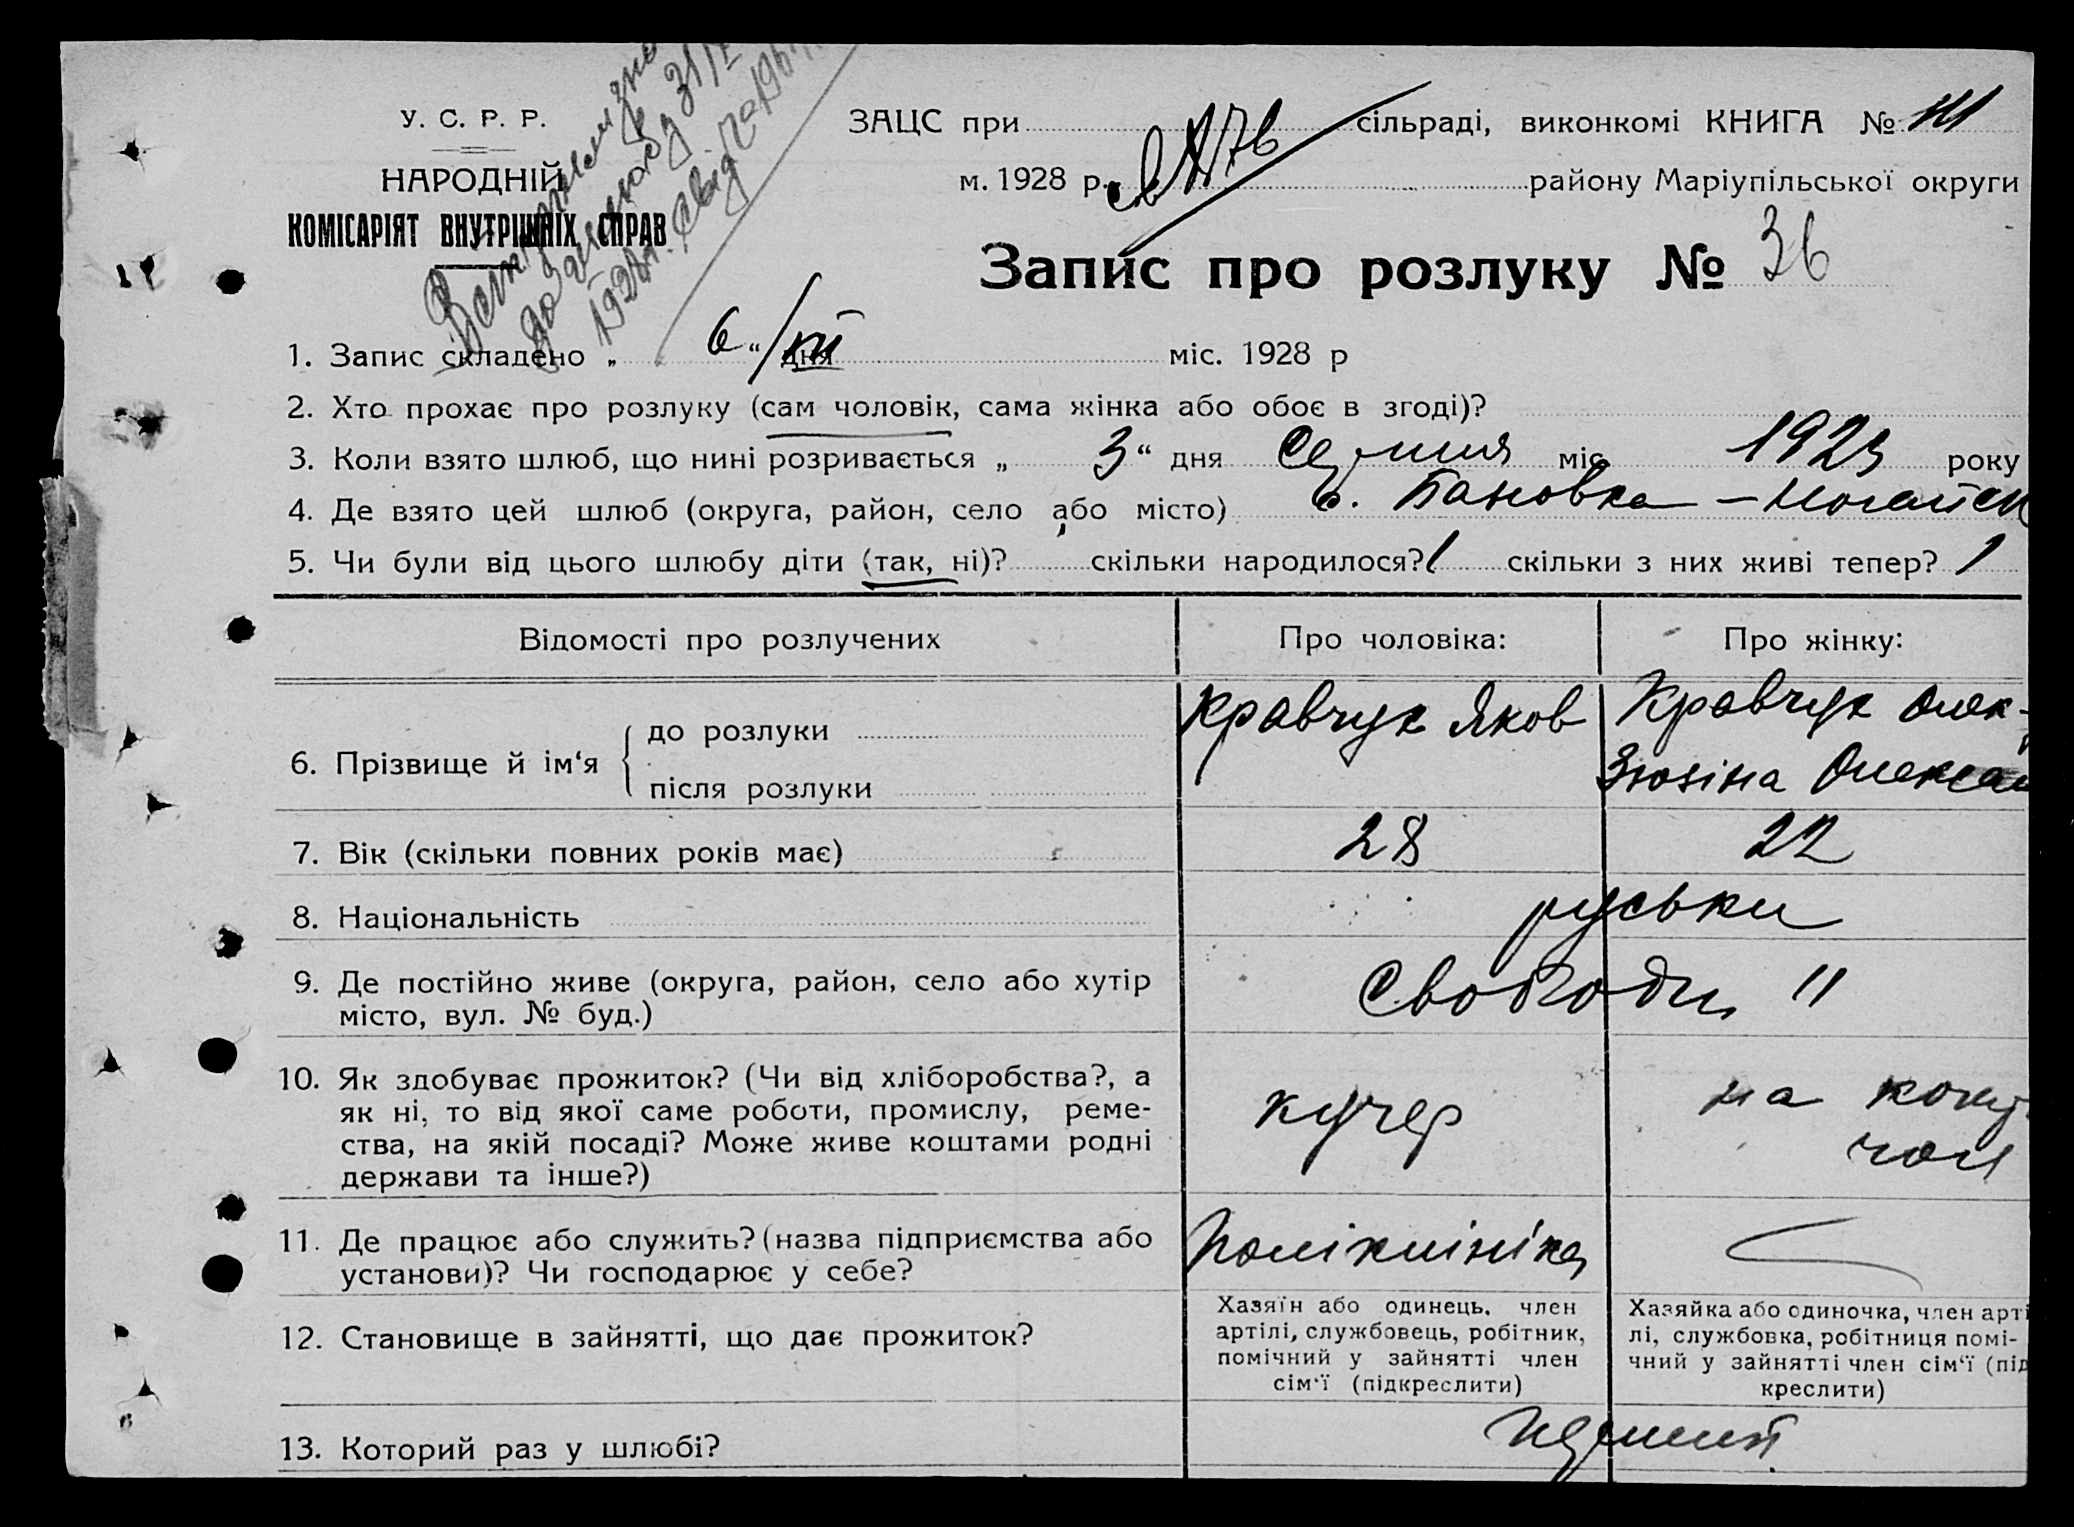 У. С. Р. Р.
НАРОДНІЙ
КОМІСАРІЯТ ВНУТРІШНІХ СПРАВ
ЗАЦС при сільраді, виконкомі КНИГА №
м. 1928 р. району Маріупільської округи
Запис про розлуку № 36
1. Запис складено „ 6 “ дня міс. 1928 р
2. Хто прохає про розлуку (сам чоловік, сама жінка або обоє в згоді)?
3. Коли взято шлюб, що нині розривається „ 3 “ дня міс. 1925 року
4. Де взято цей шлюб (округа, район, село або місто) с.
5. Чи були від цього шлюбу діти (так, ні)? скільки народилося? 1 скільки з них живі тепер? 1
Відомості про розлучених
Про чоловіка:
Про жінку:
6. Прізвище й ім‘я
до розлуки
після розлуки
Кравчук Яков
Кравчук Олек-
Зюзіна Олексан
7. Вік (скільки повних років має) 28 22
8. Національність руськи
9. Де постійно живе (округа, район, село або хутір
місто, вул. № буд.)
Свободи 11
10. Як здобуває прожиток? (Чи від хліборобства?, а
як ні, то від якої саме роботи, промислу, реме-
ства, на якій посаді? Може живе коштами родні
держави та інше?)
кучер
на
чол
11. Де працює або служить? (назва підприємства або
установи)? Чи господарює у себе?
Поліклініка
12. Становище в зайнятті, що дає прожиток?
Хазяїн або одинець, член
артілі, службовець, робітник,
помічний у зайнятті член
сім‘ї (підкреслити)
Хазяйка або одиночка, член арті
лі, службовка, робітниця помі-
чний у зайнятті член сім‘ї (під
креслити)
13. Которий раз у шлюбі?